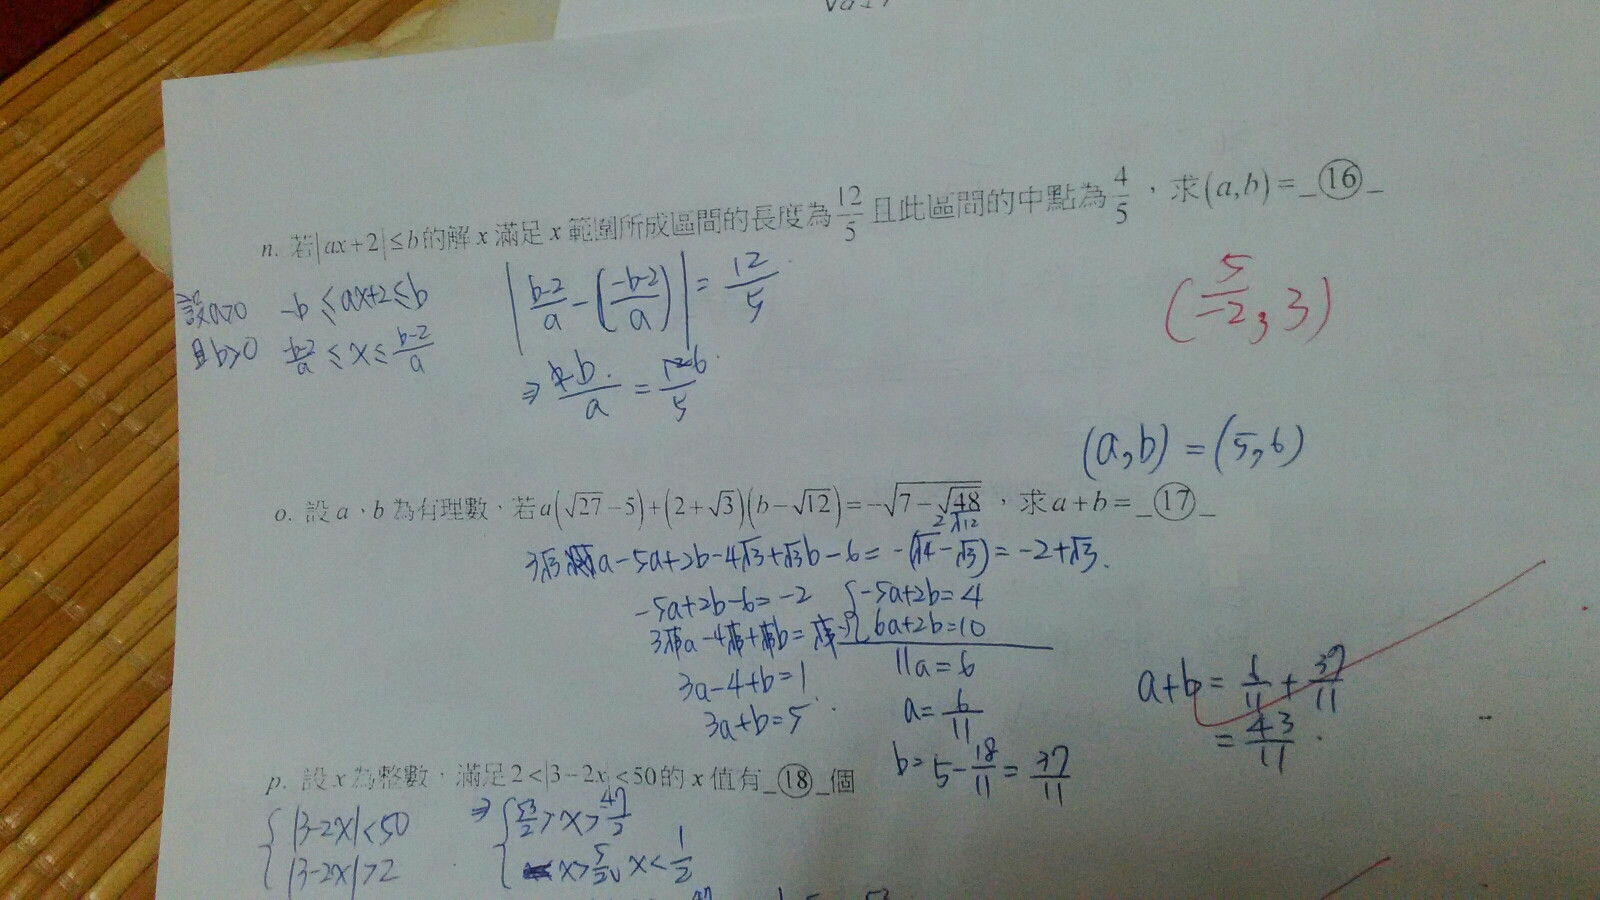 n. 若|ax+2|≤b的解 x 滿足 x 範圍所成區間的長度為 12/5 且此區間的中點為 4/5 ，求(a,b)=_⑯_
設a>0 -b≤ax+2≤b
且b>0 -b-2/a ≤ x ≤ b-2/a
|b-2/a - (-b-2/a)| = 12/5
⇒ 2b/a = 12/5 6
(5/-2, 3)
(a,b) = (5,6)
o. 設 a、b 為有理數，若a(√27-5)+(2+√3)(b-√12)=-√(7-√48)，求a+b=_⑰_
2√12
3√3a-5a+2b-4√3+√3b-6=-(√4-√3)=-2+√3.
-5a+2b-6=-2
3√3a-4√3+√3b=√3
3a-4+b=1
3a+b=5
{-5a+2b=4
-) 6a+2b=10
11a=6
a=6/11
b=5-18/11=37/11
a+b=6/11+37/11
=43/11.
p. 設 x 為整數，滿足2<|3-2x|<50的 x 值有_⑱_個
{|3-2x|<50
|3-2x|>2
⇒ {53/2>x>-47/2
x>5/2, x<1/2